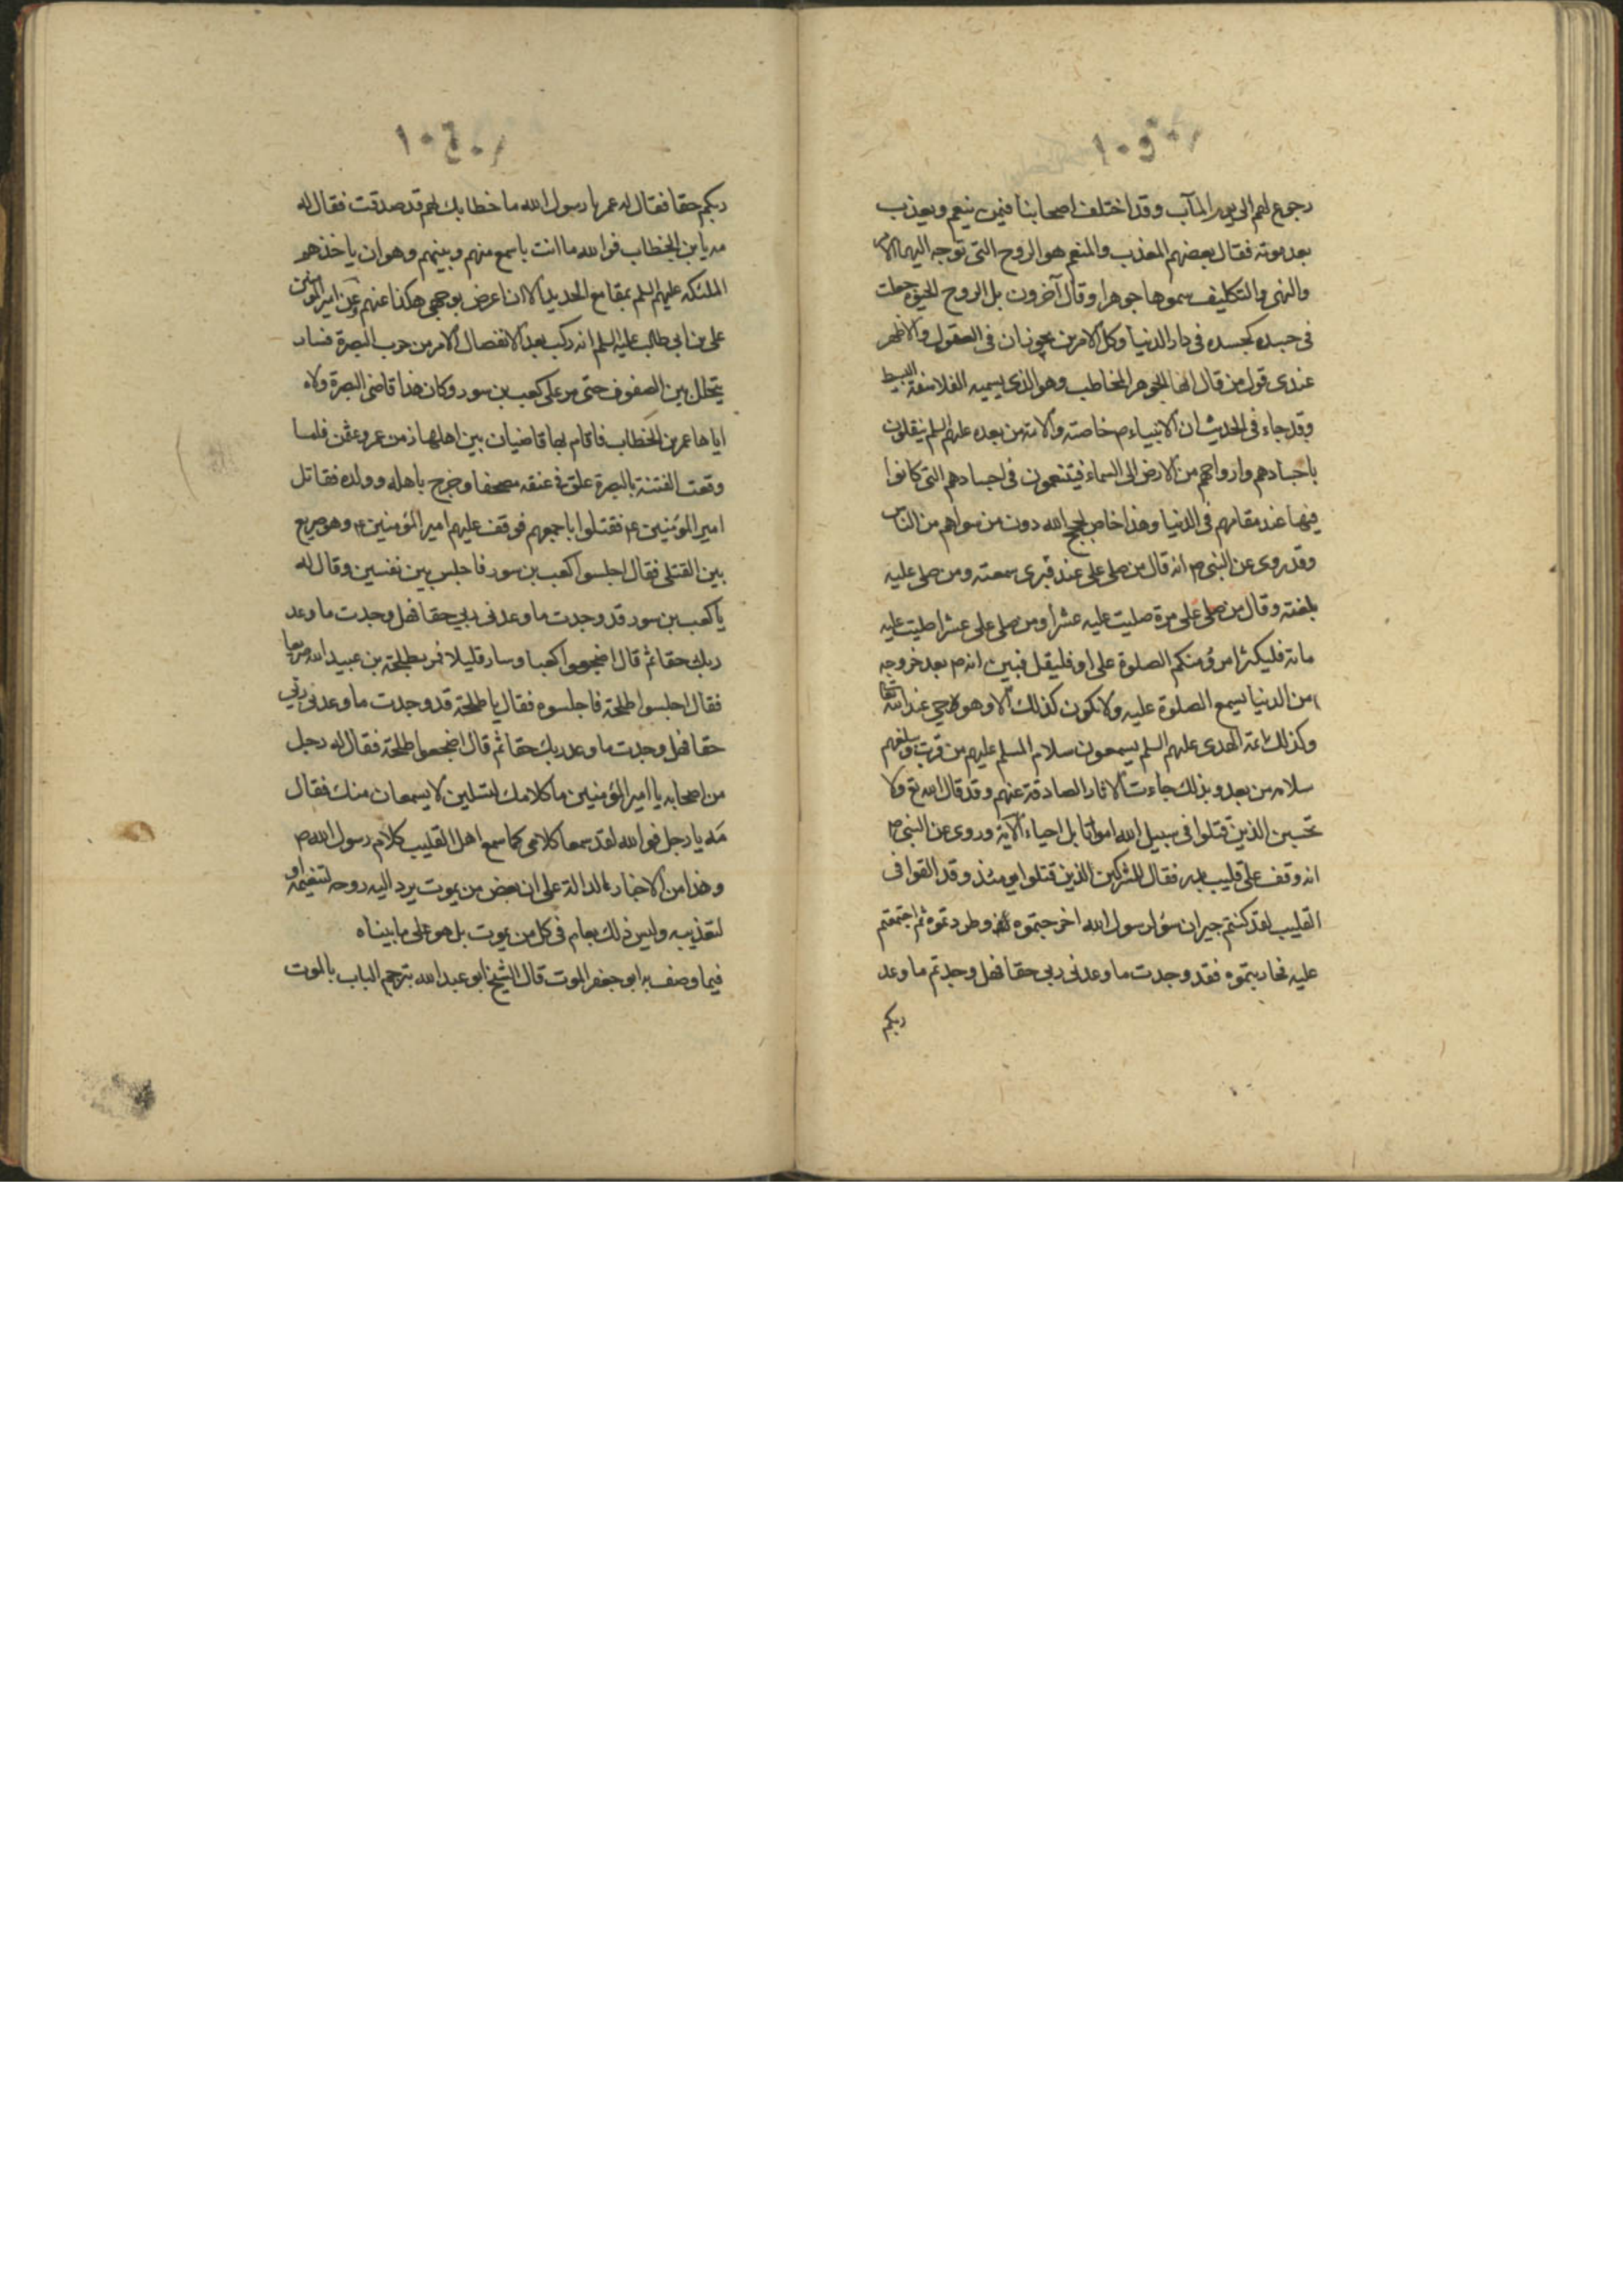 رجوع لهم الى يوم المآب وقد اختلف اصحابنا فيمن ينعم ويعذب
بعد موته فقال بعضهم المعذب والمنعم هو الروح التي توجه اليها الامر
والنهي والتكليف سموها جوهرا وقال آخرون بل الروح الحيوة جعلت
في جسد كجسده في دار الدنيا وكلا الامرين يجوزان في العقول والاظهر
عندي قول من قال انها الجوهر المخاطب وهو الذي يسميه الفلاسفة البسيط
وقد جاء في الحديث ان الانبياء ص خاصة والائمة من بعده عليهم السلم ينقلون
باجسادهم وارواحهم من الارض الى السماء فيتنعمون في اجسادهم التي كانوا
فيها عند مقامهم في الدنيا وهذا خاص لحجج الله دون من سواهم من الناس
وقد روى عن النبي ص انه قال من صلى علي عند قبري سمعته ومن صلى عليه
بلغته وقال من صلى على مرة صليت عليه عشرا ومن صلى على عشرا صليت عليه
مائة فليكثر امرؤ منكم الصلوة على او فليقل فبين انه ص بعد خروجه
من الدنيا يسمع الصلوة عليه ولا يكون كذلك الا وهو حي عند الله تعا
وكذلك ائمة الهدى عليهم السلم يسمعون سلام المسلم عليهم من قرب ويبلغهم
سلامه من بعد وبذلك جاءت الاثار الصادقة عنهم وقد قال الله تع ولا
تحسبن الذين قتلوا في سبيل الله امواتا بل احياء الآية وروى عن النبي ص
انه وقف على قليب بدر فقال للمشركين الذين قتلوا يومئذ وقد القوا في
القليب لقد كنتم جيران سؤ لرسول الله اخرجتموه وطردتموه ثم اجتمعتم
عليه فحاربتموه فقد وجدت ما وعدني ربي حقا فهل وجدتم ما وعد
ربكم
١٠٤
ربكم حقا فقال له عمر يا رسول الله ما خطابك لهم قد صدقت فقال له
مه يا بن الخطاب فوالله ما انت باسمع منهم وبينهم وهو ان ياخذهم
الملئكة عليهم السلم بمقامع الحديد الا ان اعرض بوجهي هكذا عنهم وعن امير المؤمنين
على بن ابي طالب عليه السلم انه ركب بعد الانفصال الامر من حرب البصرة فسار
يتخلل بين الصفوف حتى مر على كعب بن سور وكان هذا قاضي البصرة ولاه
اياها عمر بن الخطاب فاقام بها قاضيان بين اهلها زمن عمر وعثمن فلما
وقعت الفتنة بالبصرة علق في عنقه مصحفا وخرج باهله وولده فقاتل
امير المؤمنين ع فقتلوا باجمعهم فوقف عليهم امير المؤمنين ع وهو صريع
بين القتلى فقال اجلسوا كعب بن سور فاجلس بين نفسين وقال له
يا كعب بن سور قد وجدت ما وعدني ربي حقا فهل وجدت ما وعد
ربك حقا ثم قال اضجعوا كعبا وسار قليلا فمر بطلحة بن عبيد الله صريعا
فقال اجلسوا طلحة فاجلسوه فقال يا طلحة قد وجدت ما وعدني ربي
حقا فهل وجدت ما وعد ربك حقا ثم قال اضجعوا طلحة فقال له رجل
من اصحابه يا امير المؤمنين ما كلامك لقتيلين لا يسمعان منك فقال
مه يا رجل فوالله لقد سمعا كلامي كما سمع اهل القليب كلام رسول الله ص
وهذا من الاخبار الدالة على ان بعض من يموت يرد اليه روحه لتنعيمه او
لتعذيبه وليس ذلك بعام في كل من يموت بل هو على ما بيناه
فيما وصف به ابو جعفر الموت قال الشيخ ابو عبد الله ترجم الباب بالموت